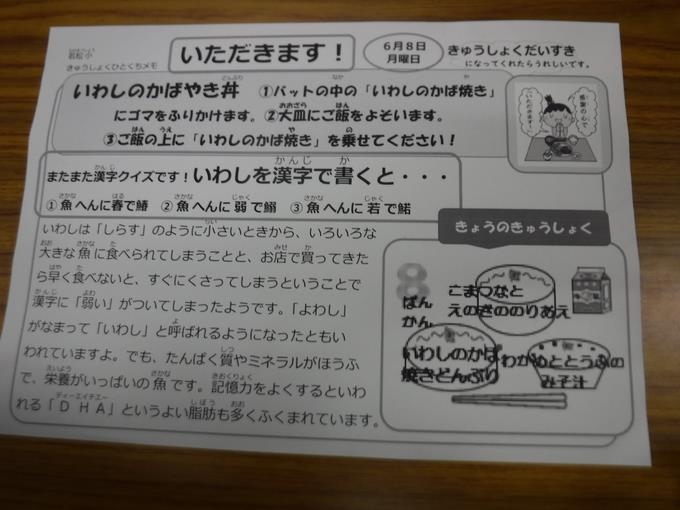 若松小
きゅうしょくひとくちメモ
いただきます!
6月8日
月曜日
きゅうしょくだいすき
になってくれたらうれしいです。
いわしのかばやき丼 ①バットの中の「いわしのかば焼き」
にゴマをふりかけます。②大皿にご飯をよそいます。
③ご飯の上に「いわしのかば焼き」を乗せてください!
感謝の心で
いただきます
またまた漢字クイズです!いわしを漢字で書くと・・・
①魚へんに春で鰆 ②魚へんに弱で鰯 ③魚へんに若で鰙
いわしは「しらす」のように小さいときから、いろいろな
大きな魚に食べられてしまうことと、お店で買ってきた
ら早く食べないと、すぐにくさってしまうということで
漢字に「弱い」がついてしまったようです。「よわし」
がなまって「いわし」と呼ばれるようになったともい
われていますよ。でも、たんぱく質やミネラルがほうふ
で、栄養がいっぱいの魚です。記憶力をよくするといわ
れる「DHA」というよい脂肪も多くふくまれています。
きょうのきゅうしょく
8
ばん
かん
こまつなと
えのきののりあえ
いわしのかば
焼きどんぶり
わかめととうふの
みそ汁